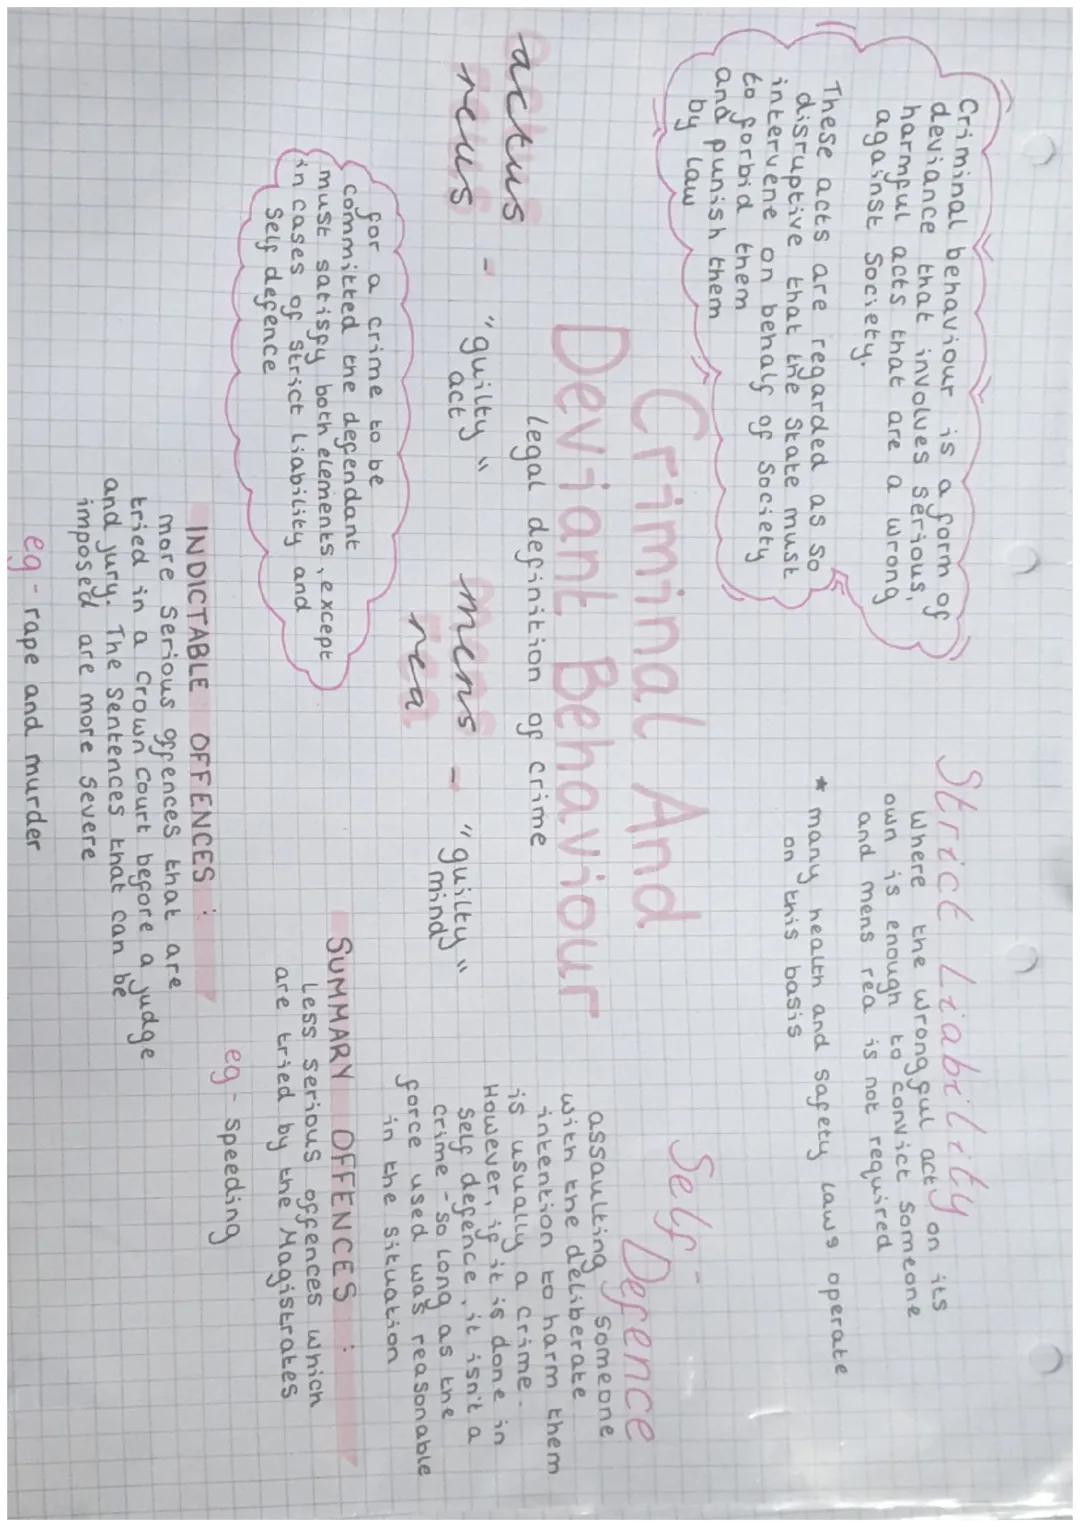 Criminal behaviour is a form of
deviance that involves serious,
harmful acts that are a wrong
against society.
These acts are regarded as so
disruptive that the state must
intervene on behalf of society
to forbid them
and punish them
by law
Strict Liability
Where the wrongful act on its
own is enough to convict someone
and mens rea is not required
* many health and safety laws operate
on this basis
Criminal And
Deviant Behaviour
Legal definition of crime
actus
reus - "guilty"
act
mens - "guilty"
rea mind
for a crime to be
committed the defendant
must satisfy both elements, except
in cases of strict liability and
self defence
Self-
Defence
assaulting someone
with the deliberate
intention to harm them
is usually a crime.
However, if it is done in
self defence, it isn't a
crime - so long as the
force used was reasonable
in the situation
INDICTABLE OFFENCES :
more serious offences that are
tried in a Crown Court before a judge
and jury. The sentences that can be
imposed are more severe
eg - rape and murder
SUMMARY OFFENCES :
Less serious offences which
are tried by the Magistrates
eg - speeding